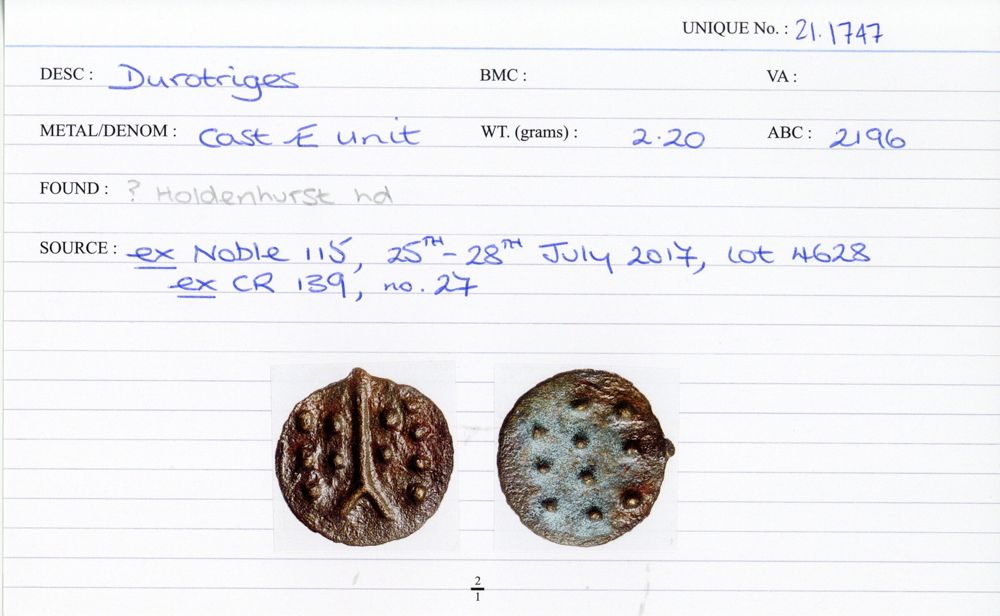 UNIQUE No. : 21.1747
DESC : Durotriges BMC : VA :
METAL/DENOM : Cast Æ unit WT. (grams) : 2.20 ABC : 2196
FOUND : ? Holdenhurst hd
SOURCE : ex Noble 115, 25TH - 28TH July 2017, lot 4628
ex CR 139, no. 27
2
1